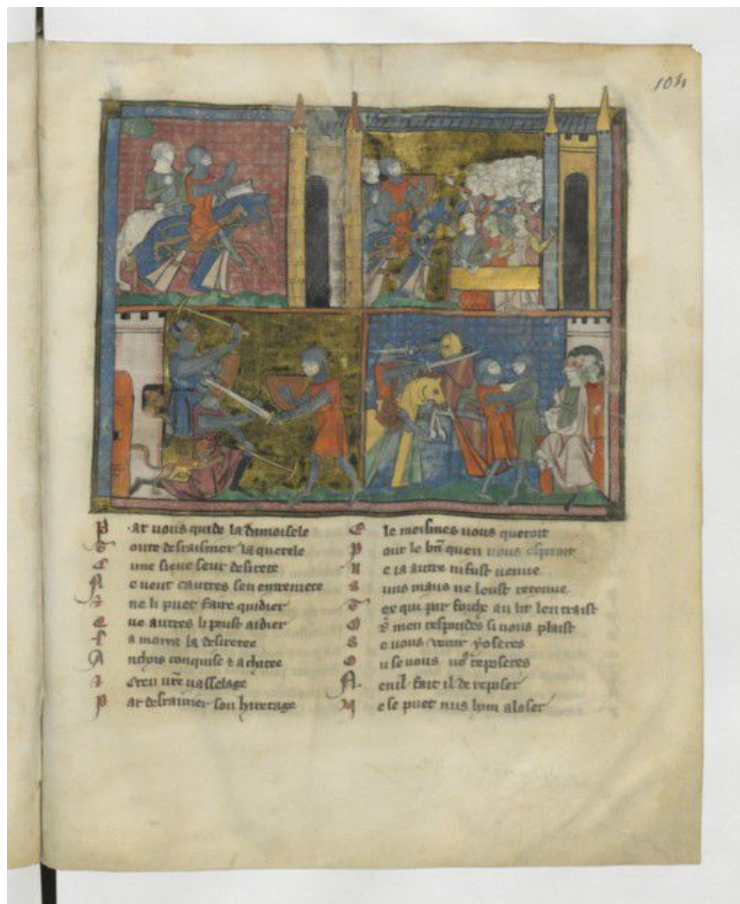 104
Par vous quide la damoisele
Toute desraisnier la querele
E une sieue seur desirete
Ne veut cautres sen entremete
Ne li puet faire quidier
Que autres li puist aidier
Sa morra la desiretee
Anchois conquise & achatee
Avra vre vasselage
Par desraisnier son hiretage
Ele meismes vous queroit
Pour le bñ quen vous esperoit
Ne ia autre ni fust venue
Uns maus ne leust retenue
Tex qui par forche au lit len traist
Or men respondes si vous plaist
Se vous venir y oseres
Ou se vous vos reposeres
Nenil fait il de reposer
Ne se puet nus hom aloser